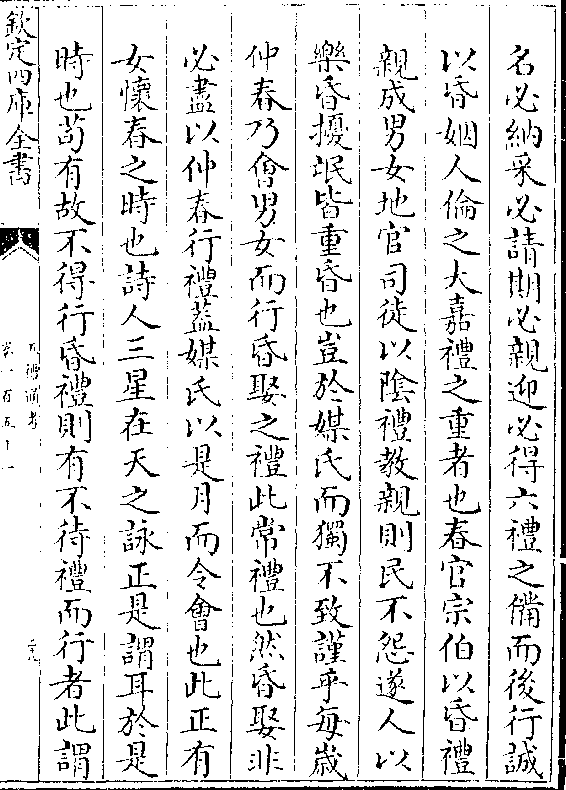 名必納采必請期必親迎必得六禮之備而後行誠
以昏姻人倫之大嘉禮之重者也春官宗伯以昏禮
親成男女地官司徒以陰禮教親則民不怨遂人以
樂昏擾氓皆重昏也豈於媒氏而獨不致謹乎每嵗
仲春乃㑹男女而行昏娶之禮此常禮也然昏娶非
必盡以仲春行禮葢媒氏以是月而令㑹也此正有
女懷春之時也詩人三星在天之詠正是謂耳於是
時也茍有故不得行昏禮則有不待禮而行者此謂
欽定四庫全書
五禮通考
卷一百五十一